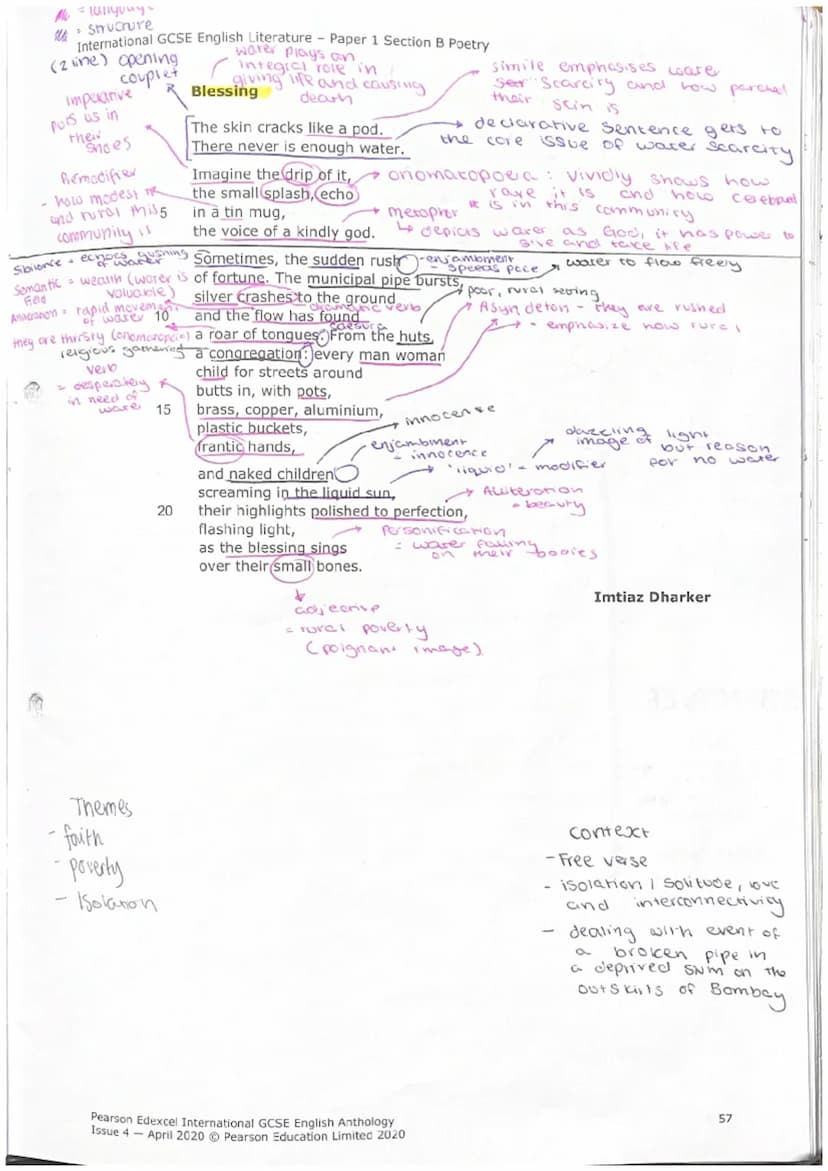 = language
= structure
International GCSE English Literature – Paper 1 Section B Poetry
(2 line) opening
couplet
water plays an
integral role in
giving life and causing
death
Blessing
simile emphasises water
scarcity and how parched
their skin is
imperative
puts us in
their
shoes
The skin cracks like a pod.
There never is enough water.
→ declarative sentence gets to
the core issue of water scarcity
Imagine the drip of it,
the small splash, echo
5 in a tin mug,
the voice of a kindly god.
→ onomatopoeia : vividly shows how
rare it is and how celebrated
it is in this community
Premodifier
- how modest
and rural this
community is
→ metopher
↳ depicts water as God, it has power to
give and take life
Sibilance = echoes gushing
of water
Sometimes, the sudden rush
of fortune. The municipal pipe bursts,
silver crashes to the ground
10 and the flow has found
a roar of tongues. From the huts,
a congregation: every man woman
child for streets around
butts in, with pots,
15 brass, copper, aluminium,
plastic buckets,
frantic hands,
- enjambment
- speeds pace
→ water to flow freely
Semantic = wealth (water is
field valuable)
= rapid movement
of water
they are thirsty (onomatopoeia)
religious gathering
verb
= desperately
in need of
water
dramatic verb
caesura
poor, rural setting
Asyndeton - they are rushed
- emphasize how rural
innocense
enjambment
= innocence
→ 'liquid' = modifier
dazzling light
image of but reason
for no water
and naked children
screaming in the liquid sun,
20 their highlights polished to perfection,
flashing light,
as the blessing sings
over their small bones.
→ Alliteration
= beauty
→ personification
= water falling
on their bodies
adjective
= rural poverty
(poignant image)
Imtiaz Dharker
Themes
- faith
- poverty
- Isolation
Context
- Free verse
- isolation / solitude, love
and interconnectivity
- dealing with event of
a broken pipe in
a deprived slum on the
outskirts of Bombay
Pearson Edexcel International GCSE English Anthology
Issue 4 — April 2020 © Pearson Education Limited 2020
57